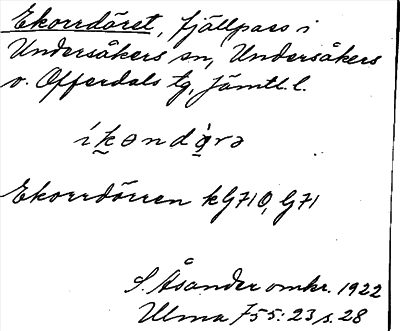 Ekorrdöret, fjällpass i
Undersåkers sn, Undersåkers
o. Offerdals tg, Jämtl. l.
Ekorrdörren kG710, G71
S. Åsander omkr. 1922
Ulma 755:23 s. 28